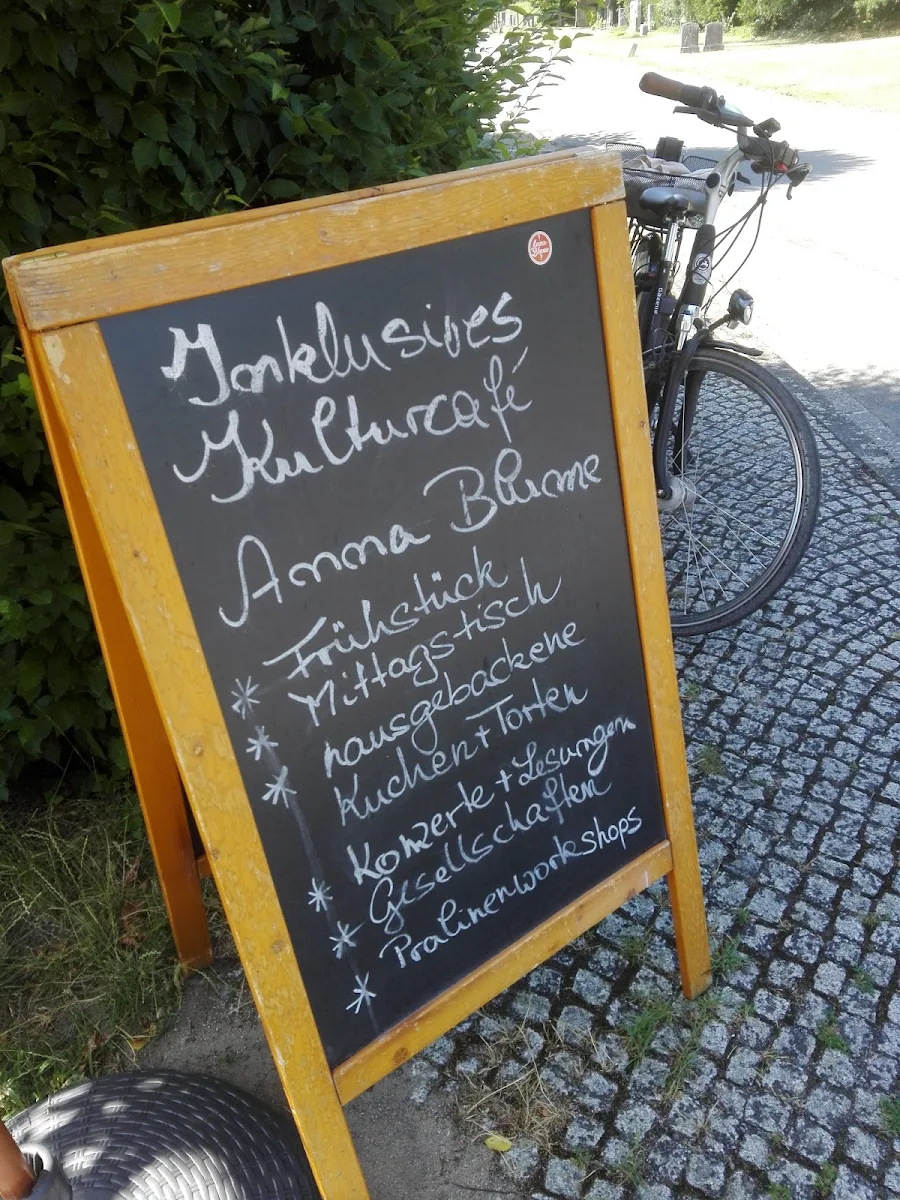 Inklusives
Kulturcafé
Anna Blume
* Frühstück
* Mittagstisch
* hausgebackene
Kuchen + Torten
* Konzerte + Lesungen
* Gesellschaften
* Pralinenworkshops
GAZELLE